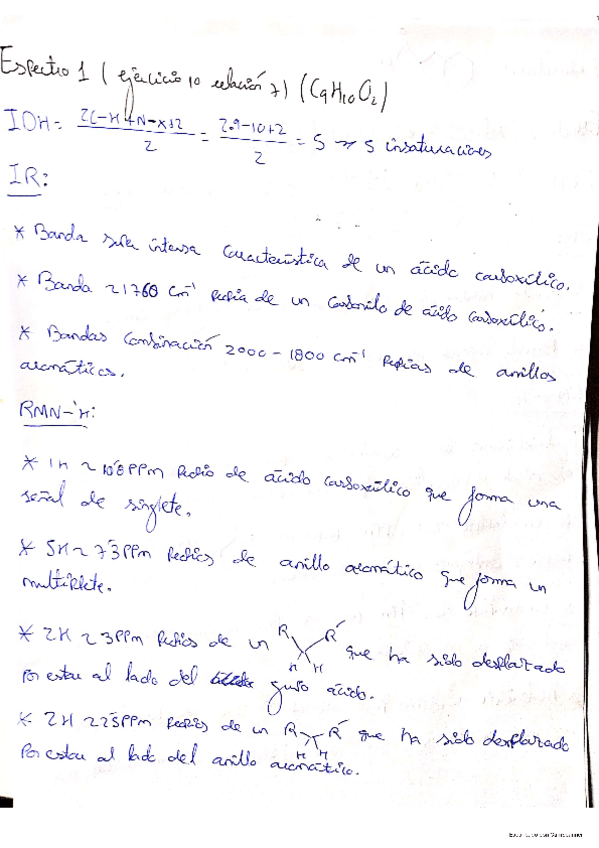 Espectro 1 ( ejercicio 10 relación 7) (C9H10O2)
IDH = 2C-H+N-X+2 / 2 = 2·9-10+2 / 2 = 5 ⇝ 5 insaturaciones
IR:
* Banda súper intensa característica de un ácido carboxílico.
* Banda ~1760 cm-1 propia de un carbonilo de ácido carboxílico.
* Bandas combinación 2000 - 1800 cm-1 propias de anillos
aromáticos.
RMN-1H:
* 1H ~ 10'8 PPm propio de ácido carboxílico que forma una
señal de singlete.
* 5H ~ 7'3 PPm propios de anillo aromático que forma un
multiplete.
* 2H ~ 3 PPm propios de un R R' H H que ha sido desplazado
por estar al lado del grupo ácido.
* 2H ~ 2'5 PPm propios de un R R' H H que ha sido desplazado
por estar al lado del anillo aromático.